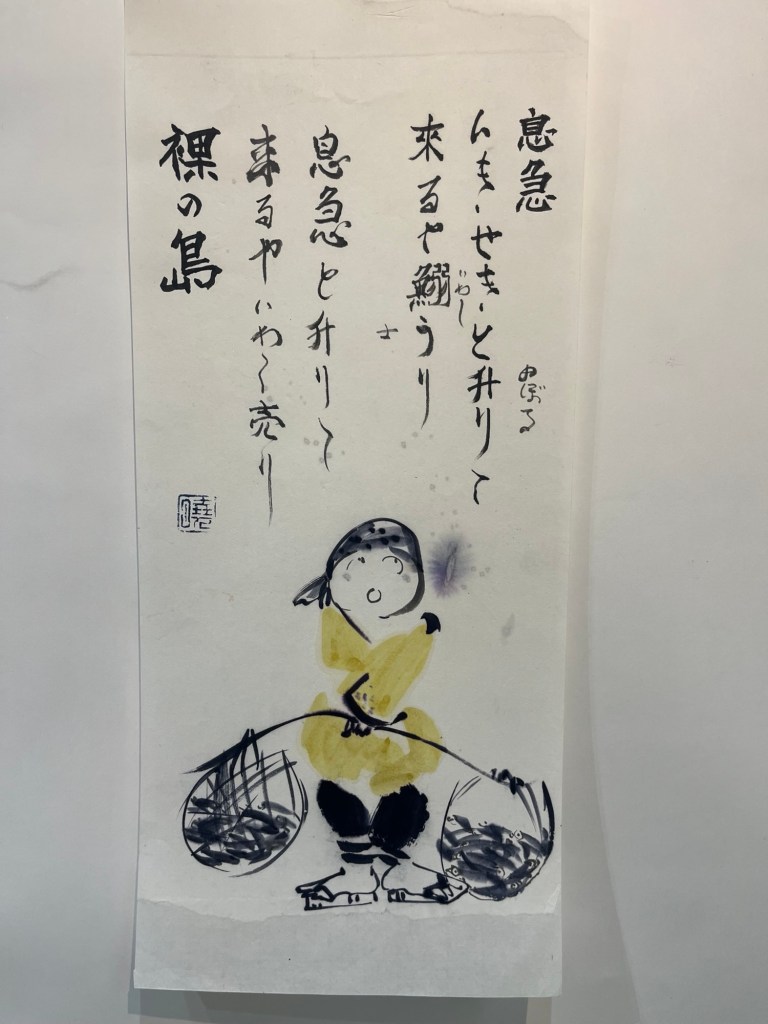 息急
のぼる
いきせきと升りて
いわし
來るや鰯うり
士
息急と升りて
来るやいわし売り
裸の島
曉